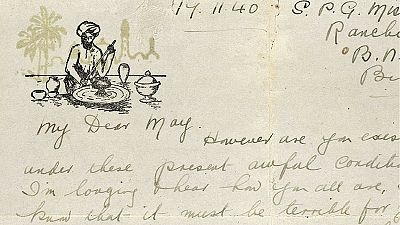 17.11.40
S. P. G. Mis
Ranch
B. N.
Bi
My Dear May.
However are you exis
under these present awful conditio
I'm longing to hear how you all are,
know that it must be terrible for